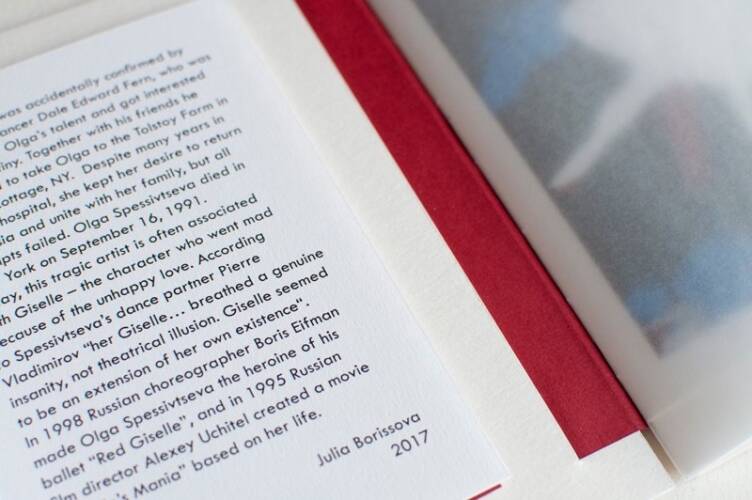 was accidentally confirmed by
ancer Dale Edward Fern, who was
Olga's talent and got interested
iny. Together with his friends he
to take Olga to the Tolstoy Farm in
ottage, NY. Despite many years in
hospital, she kept her desire to return
ia and unite with her family, but all
pts failed. Olga Spessivtseva died in
York on September 16, 1991.
ay, this tragic artist is often associated
th Giselle – the character who went mad
ecause of the unhappy love. According
o Spessivtseva's dance partner Pierre
Vladimirov "her Giselle... breathed a genuine
insanity, not theatrical illusion. Giselle seemed
to be an extension of her own existence".
In 1998 Russian choreographer Boris Eifman
made Olga Spessivtseva the heroine of his
ballet "Red Giselle", and in 1995 Russian
ilm director Alexey Uchitel created a movie
's Mania" based on her life.
Julia Borissova
2017